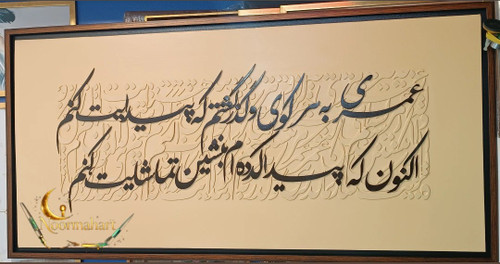 عمری به هر کوی و گذر گشتم که پیدایت کنم
اکنون که پیدا کرده‌ام بنشین تماشایت کنم
noormahart